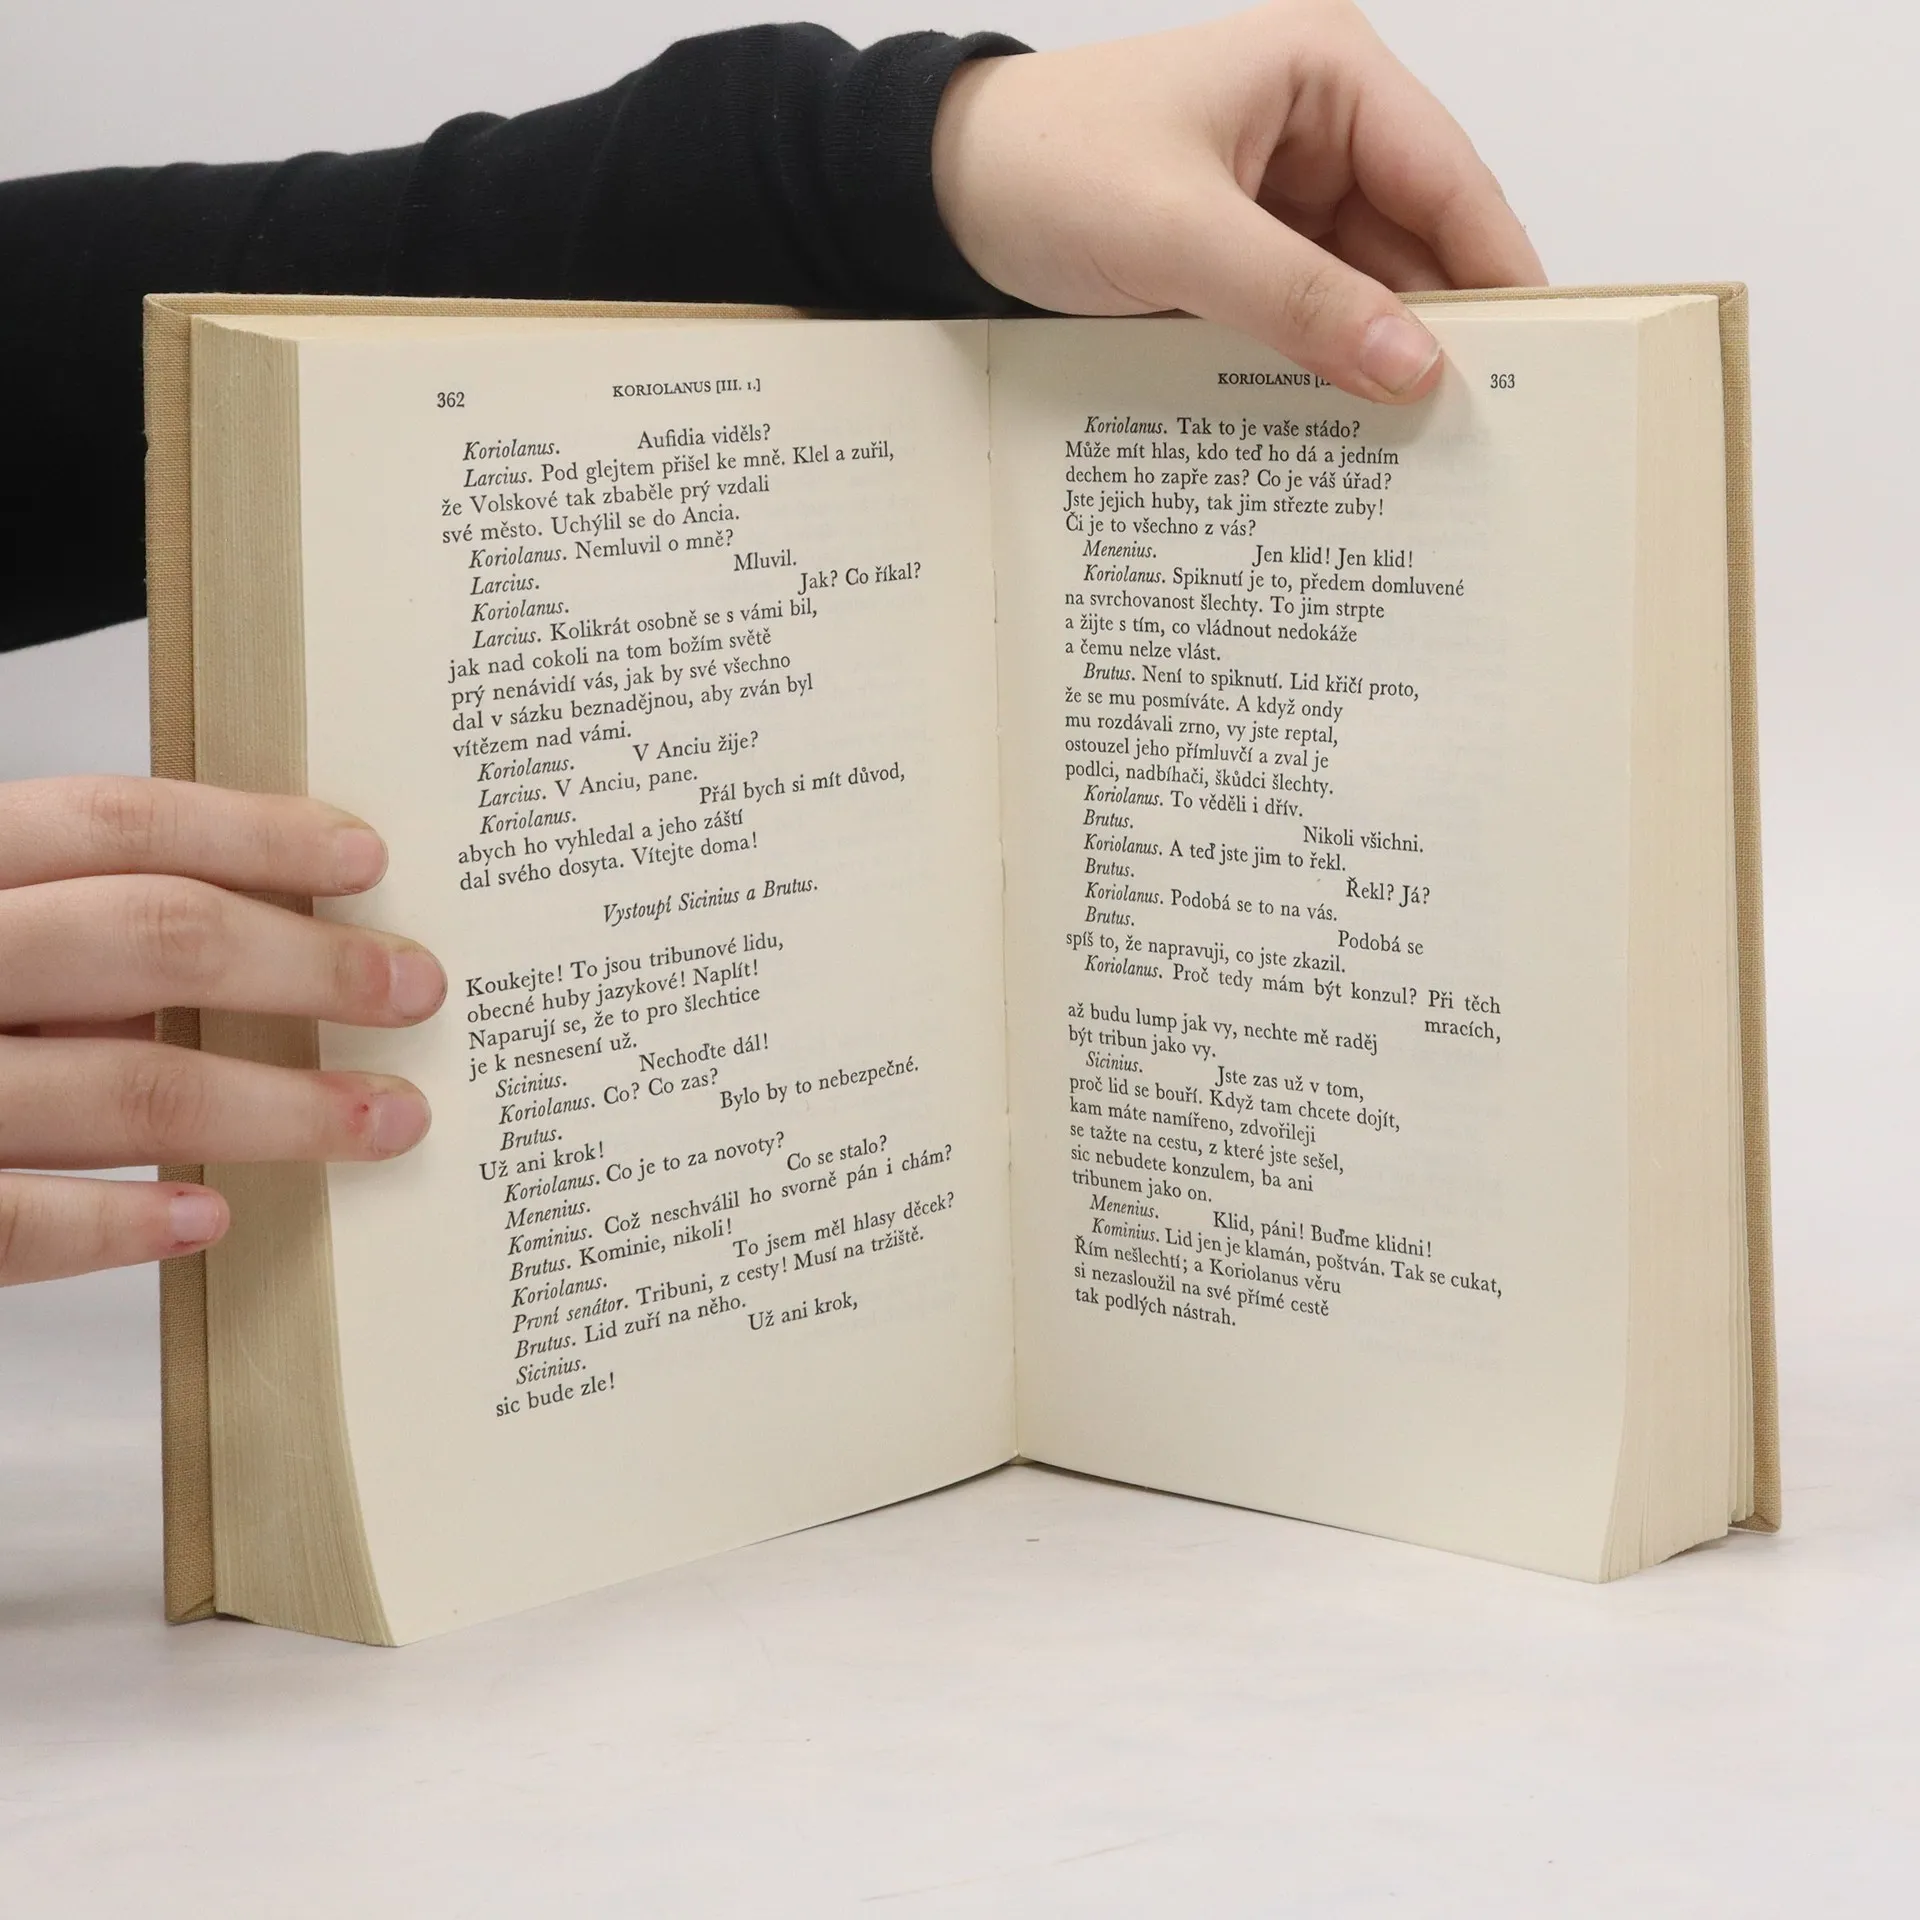 362
KORIOLANUS [III. 1.]
Koriolanus. Aufidia viděls?
Larcius. Pod glejtem přišel ke mně. Klel a zuřil,
že Volskové tak zbaběle prý vzdali
své město. Uchýlil se do Ancia.
Koriolanus. Nemluvil o mně?
Larcius. Mluvil.
Koriolanus. Jak? Co říkal?
Larcius. Kolikrát osobně se s vámi bil,
jak nad cokoli na tom božím světě
prý nenávidí vás, jak by své všechno
dal v sázku beznadějnou, aby zván byl
vítězem nad vámi.
Koriolanus. V Anciu žije?
Larcius. V Anciu, pane.
Koriolanus. Přál bych si mít důvod,
abych ho vyhledal a jeho záští
dal svého dosyta. Vítejte doma!
Vystoupí Sicinius a Brutus.
Koukejte! To jsou tribunové lidu,
obecné huby jazykové! Naplít!
Naparují se, že to pro šlechtice
je k nesnesení už.
Sicinius. Nechoďte dál!
Koriolanus. Co? Co zas?
Brutus. Bylo by to nebezpečné.
Už ani krok!
Koriolanus. Co je to za novoty?
Menenius. Co se stalo?
Kominius. Což neschválil ho svorně pán i chám?
Brutus. Kominie, nikoli!
Koriolanus. To jsem měl hlasy děcek?
První senátor. Tribuni, z cesty! Musí na tržiště.
Brutus. Lid zuří na něho.
Sicinius. Už ani krok,
sic bude zle!
KORIOLANUS
363
Koriolanus. Tak to je vaše stádo?
Může mít hlas, kdo teď ho dá a jedním
dechem ho zapře zas? Co je váš úřad?
Jste jejich huby, tak jim střezte zuby!
Či je to všechno z vás?
Menenius. Jen klid! Jen klid!
Koriolanus. Spiknutí je to, předem domluvené
na svrchovanost šlechty. To jim strpte
a žijte s tím, co vládnout nedokáže
a čemu nelze vlást.
Brutus. Není to spiknutí. Lid křičí proto,
že se mu posmíváte. A když ondy
mu rozdávali zrno, vy jste reptal,
ostouzel jeho přímluvčí a zval je
podlci, nadbíhači, škůdci šlechty.
Koriolanus. To věděli i dřív.
Brutus. Nikoli všichni.
Koriolanus. A teď jste jim to řekl.
Brutus. Řekl? Já?
Koriolanus. Podobá se to na vás.
Brutus. Podobá se
spíš to, že napravuji, co jste zkazil.
Koriolanus. Proč tedy mám být konzul? Při těch
mracích,
až budu lump jak vy, nechte mě raděj
být tribun jako vy.
Sicinius. Jste zas už v tom,
proč lid se bouří. Když tam chcete dojít,
kam máte namířeno, zdvořileji
se tažte na cestu, z které jste sešel,
sic nebudete konzulem, ba ani
tribunem jako on.
Menenius. Klid, páni! Buďme klidni!
Kominius. Lid jen je klamán, poštván. Tak se cukat,
Řím nešlechtí; a Koriolanus věru
si nezasloužil na své přímé cestě
tak podlých nástrah.